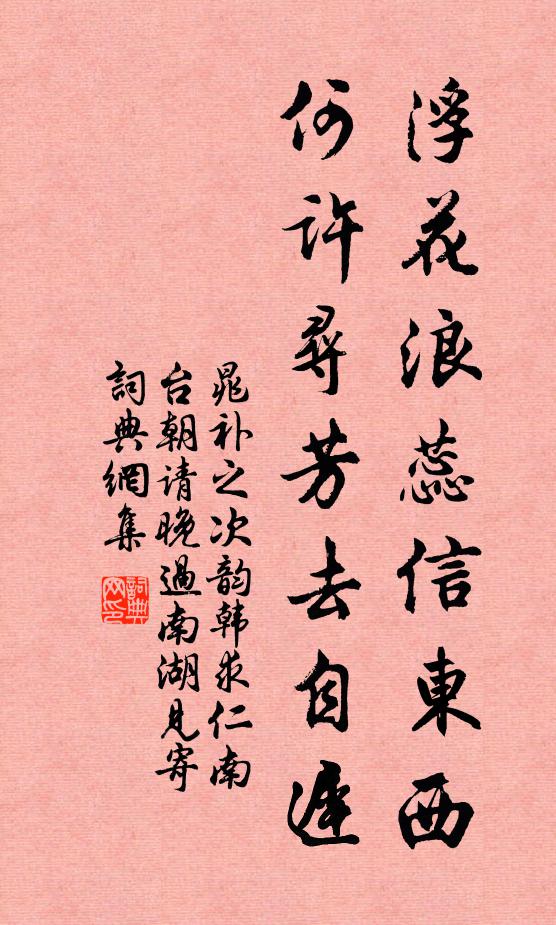 浮花浪蕊信東西
何許尋芳去自遲
晁补之次韵韩求仁南
台朝请晚過南湖見寄
詞典網集
詞典
网印